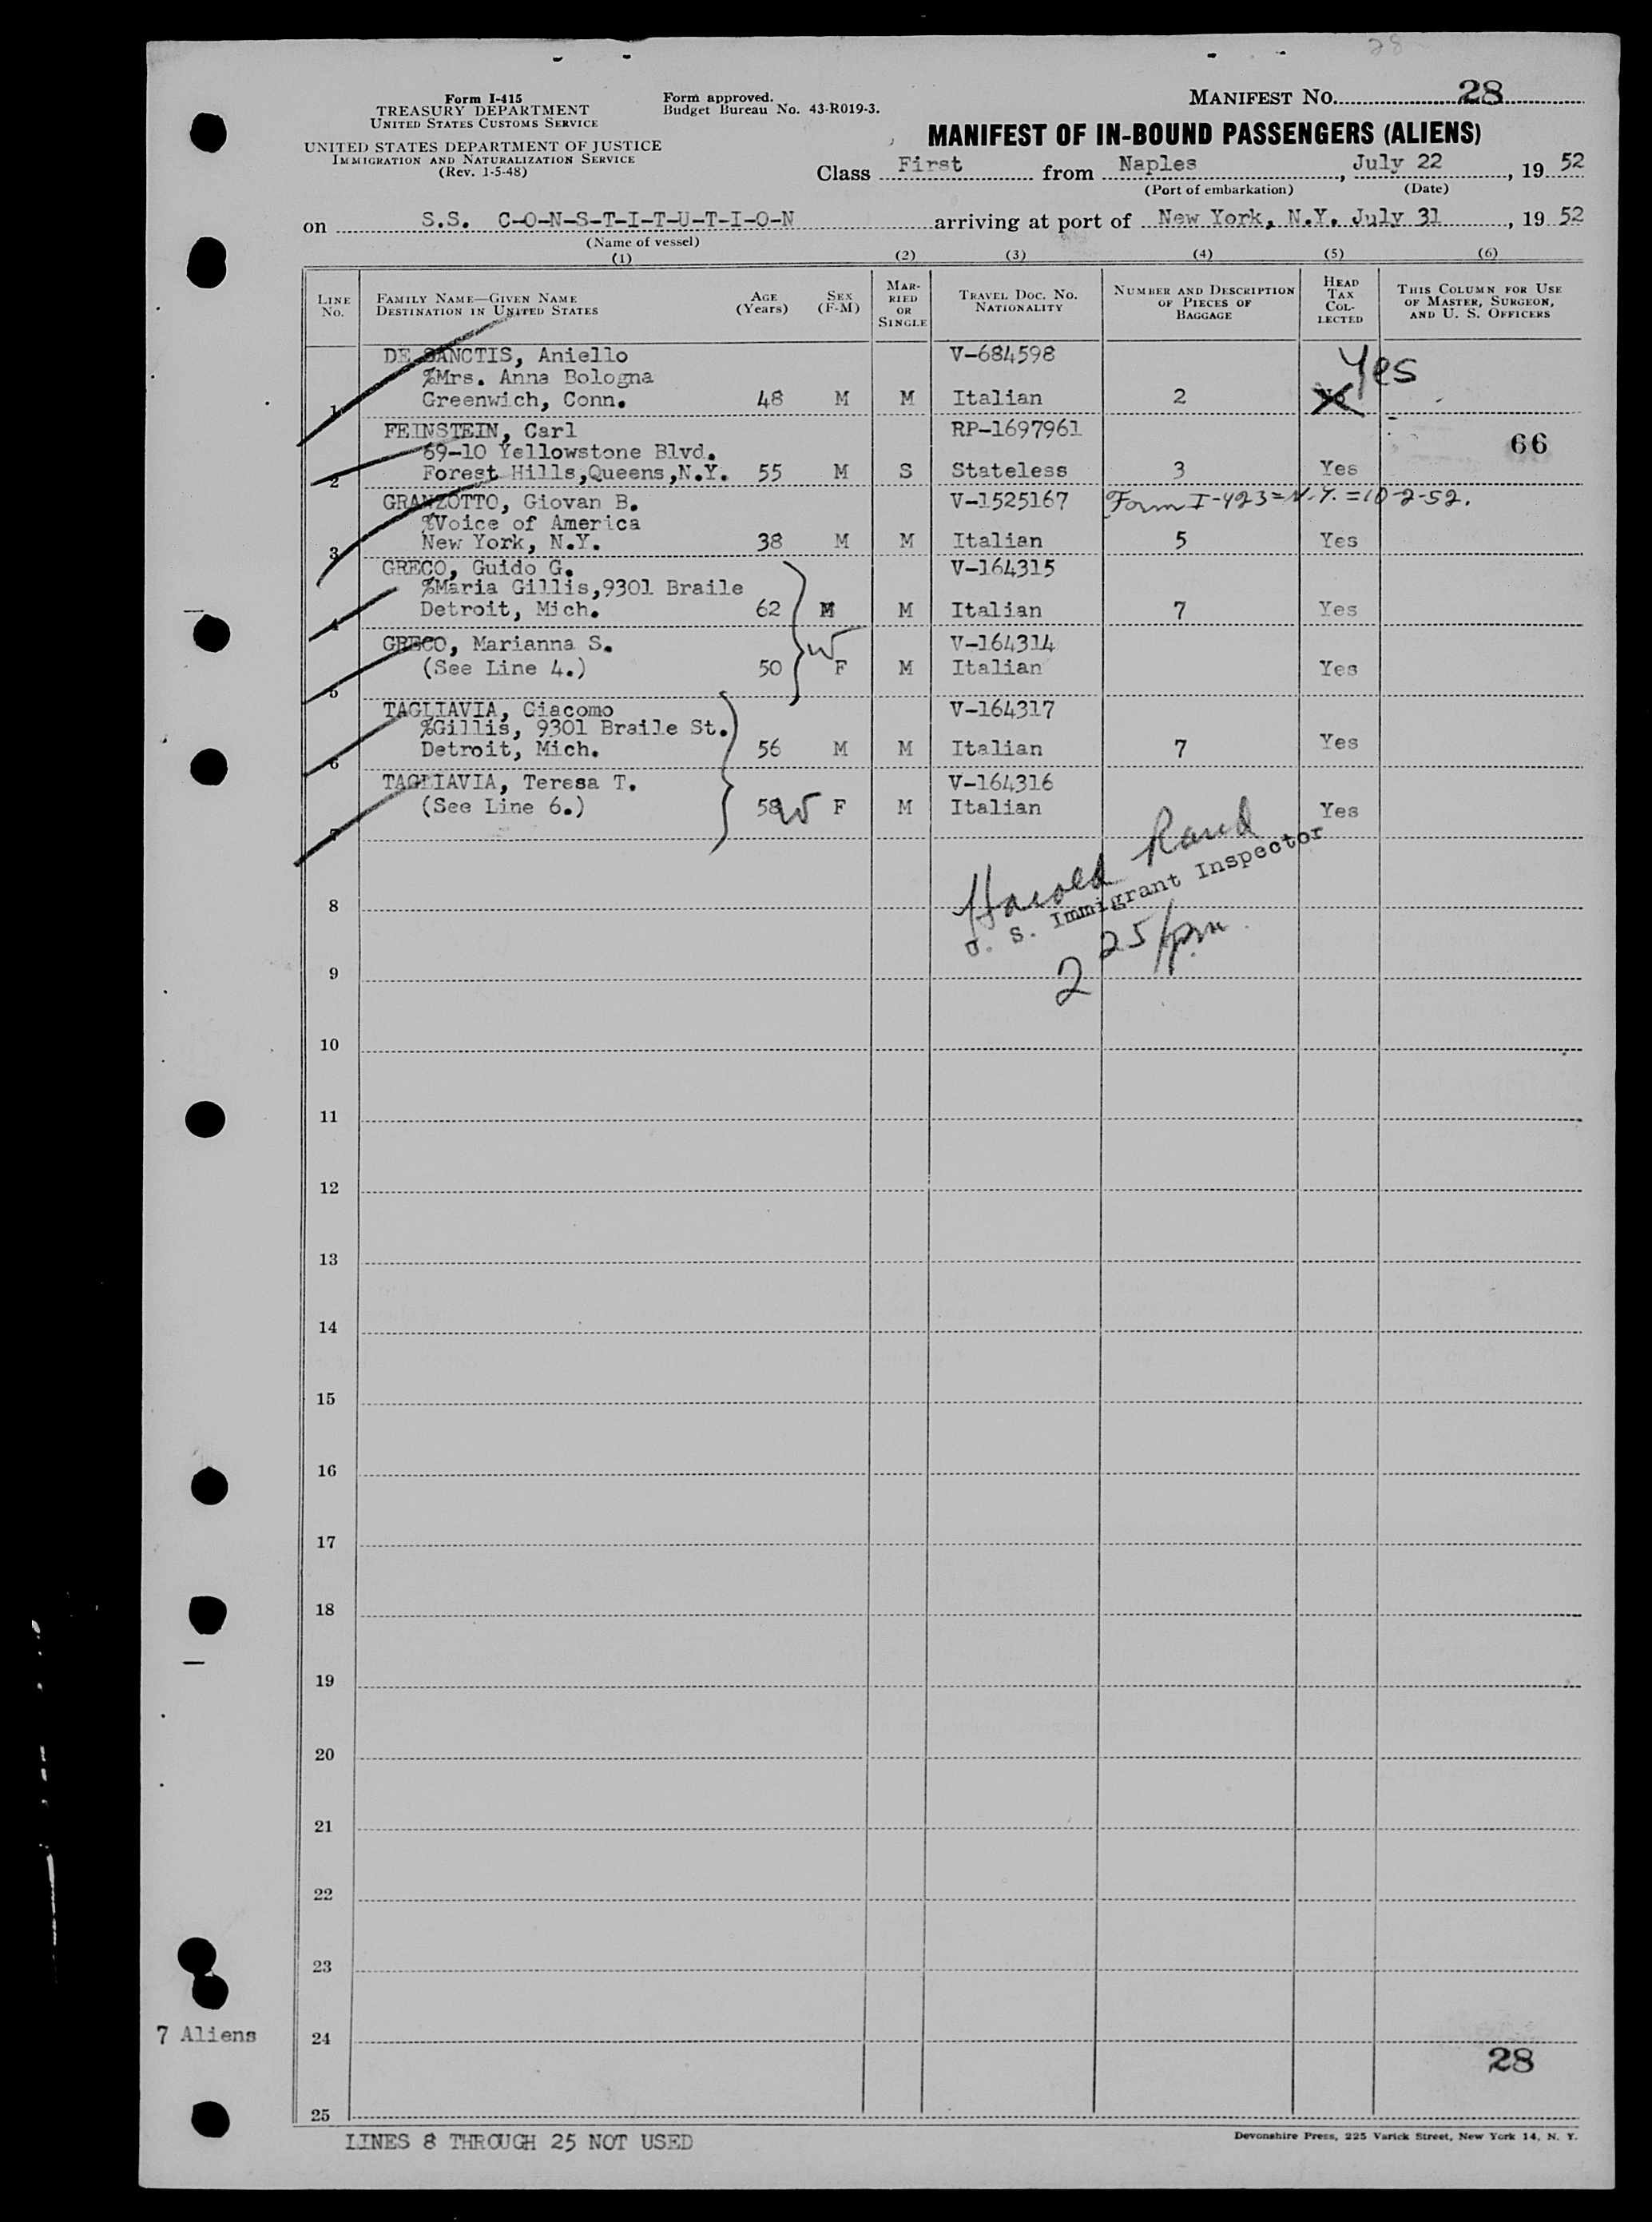 28
Form I-415
TREASURY DEPARTMENT
UNITED STATES CUSTOMS SERVICE
UNITED STATES DEPARTMENT OF JUSTICE
IMMIGRATION AND NATURALIZATION SERVICE
(Rev. 1-5-48)
Form approved.
Budget Bureau No. 43-R019-3.
MANIFEST NO. 28
MANIFEST OF IN-BOUND PASSENGERS (ALIENS)
Class First from Naples, July 22, 19 52
(Port of embarkation) (Date)
on S.S. C-O-N-S-T-I-T-U-T-I-O-N arriving at port of New York, N.Y. July 31, 19 52
(Name of vessel)
(1) (2) (3) (4) (5) (6)
LINE NO. FAMILY NAME—GIVEN NAME DESTINATION IN UNITED STATES AGE (YEARS) SEX (F-M) MARRIED OR SINGLE TRAVEL DOC. NO. NATIONALITY NUMBER AND DESCRIPTION OF PIECES OF BAGGAGE HEAD TAX COLLECTED THIS COLUMN FOR USE OF MASTER, SURGEON, AND U. S. OFFICERS
DE SANCTIS, Aniello V-684598 Yes
%Mrs. Anna Bologna
1 Greenwich, Conn. 48 M M Italian 2
FEINSTEIN, Carl RP-1697961 66
69-10 Yellowstone Blvd.
2 Forest Hills,Queens,N.Y. 55 M S Stateless 3 Yes
GRANZOTTO, Giovan B. V-1525167 Form I-423=N.Y.=10-2-52.
%Voice of America
3 New York, N.Y. 38 M M Italian 5 Yes
GRECO, Guido G. V-164315
%Maria Gillis,9301 Braile
4 Detroit, Mich. 62 M M Italian 7 Yes
GRECO, Marianna S. V-164314
(See Line 4.) 50 W F M Italian Yes
5
TAGLIAVIA, Giacomo V-164317
%Gillis, 9301 Braile St.
6 Detroit, Mich. 56 M M Italian 7 Yes
TAGLIAVIA, Teresa T. V-164316
(See Line 6.) 58 W F M Italian Yes
7
Harold Rand
U. S. Immigrant Inspector
2 25 pm
8
9
10
11
12
13
14
15
16
17
18
19
20
21
22
23
7 Aliens 24
28
25
LINES 8 THROUGH 25 NOT USED
Devonshire Press, 225 Varick Street, New York 14, N. Y.